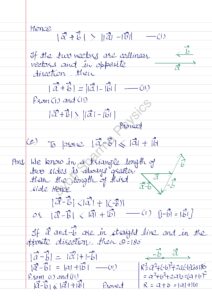 Hence
|a⃗ + b⃗| > ||a⃗| - |b⃗|| — (i)
If the two vectors are collinear
vectors and in opposite
direction then
|a⃗ + b⃗| = |a⃗| - |b⃗| — (ii)
From (i) and (ii)
|a⃗ + b⃗| ≥ ||a⃗| - |b⃗||
Proved
To prove |a⃗ - b⃗| ≤ |a⃗| + |b⃗|
Ans We know in a triangle length of
two sides is always greater
than the length of third
side Hence
|a⃗ - b⃗| < |a⃗| + |(-b⃗)|
or |a⃗ - b⃗| < |a⃗| + |b⃗| — (i) [|-b⃗| = |b⃗|]
If a⃗ and -b⃗ are in straight line and in the
opposite direction, then θ = 180°
|a⃗ - b⃗| = |a⃗| + |-b⃗|
|a⃗ - b⃗| = |a⃗| + |b⃗| — (ii)
From (i) and (ii)
Proved
Physics